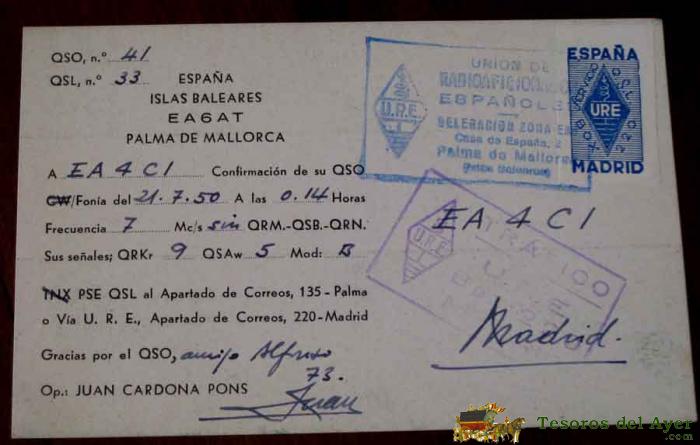 QSO, n.º 41
QSL, n.º 33 ESPAÑA
ISLAS BALEARES
EA6AT
PALMA DE MALLORCA
A EA4CI Confirmación de su QSO
CW/Fonía del 21.7.50 A las 0.14 Horas
Frecuencia 7 Mc/s sin QRM.-QSB.-QRN.
Sus señales; QRKr 9 QSAw 5 Mod: B
TNX PSE QSL al Apartado de Correos, 135-Palma
o Vía U. R. E., Apartado de Correos, 220-Madrid
Gracias por el QSO, amigo Alfredo
73.
Op.: JUAN CARDONA PONS
Juan
U.R.E.
UNION DE
RADIOAFICIONADOS
ESPAÑOLES
DELEGACION ZONA EA6
Casa de España, 2
Palma de Mallorca
ESPAÑA
SERVICIO QSL
URE
BOX 220
MADRID
EA4CI
URE
TRAFICO
U
Madrid.
Tesoros del Ayer.com